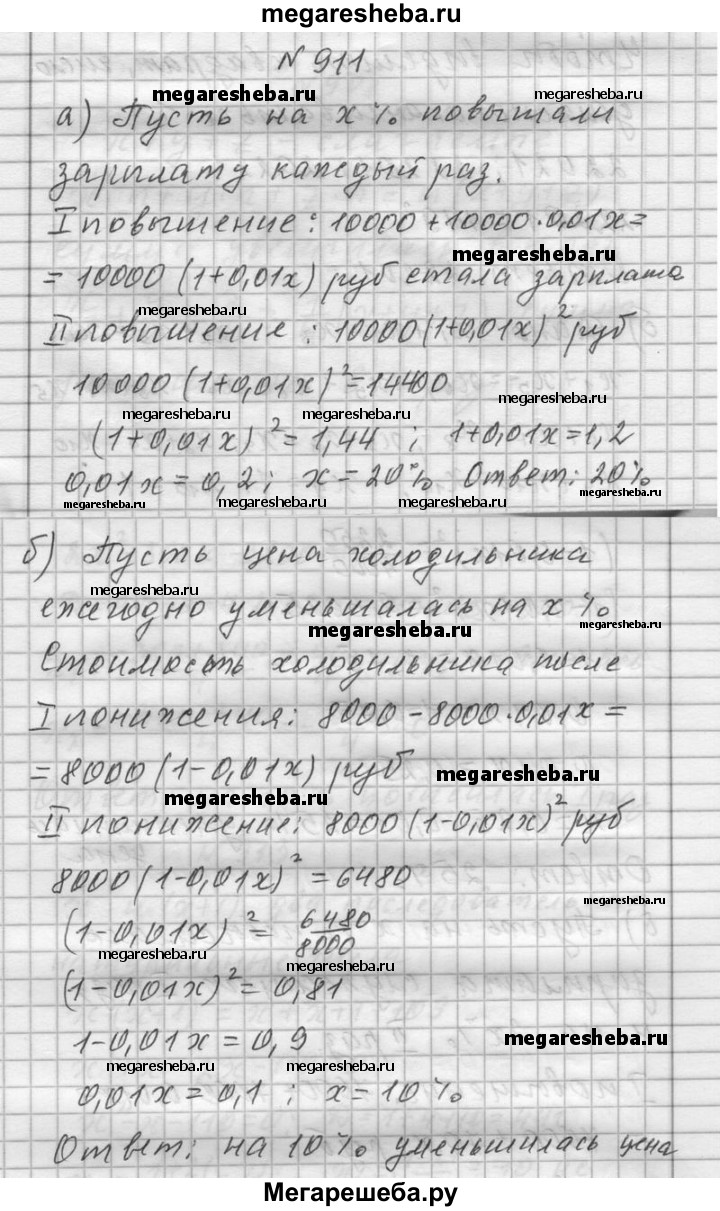 megaresheba.ru
№ 911
megaresheba.ru
megaresheba.ru
а) Пусть на x % повышали
зарплату каждый раз.
I повышение: 10000+10000·0,01x=
megaresheba.ru
= 10000 (1+0,01x) руб стала зарплата
megaresheba.ru
II повышение: 10000(1+0,01x)² руб
10000 (1+0,01x)²=14400
megaresheba.ru
megaresheba.ru
megaresheba.ru
(1+0,01x)²=1,44 ; 1+0,01x=1,2
0,01x=0,2; x=20% Ответ: 20%
megaresheba.ru
megaresheba.ru
megaresheba.ru
megaresheba.ru
б) Пусть цена холодильника
megaresheba.ru
ежегодно уменьшалась на x %
megaresheba.ru
megaresheba.ru
Стоимость холодильника после
I понижения: 8000-8000·0,01x=
= 8000 (1-0,01x) руб
megaresheba.ru
megaresheba.ru
II понижение: 8000(1-0,01x)² руб
8000(1-0,01x)²=6480
(1-0,01x)²= 6480/8000
megaresheba.ru
megaresheba.ru
(1-0,01x)²=0,81
1-0,01x=0,9
megaresheba.ru
megaresheba.ru
megaresheba.ru
0,01x=0,1 ; x=10%
Ответ: на 10% уменьшилась цена
Мегарешеба.ру